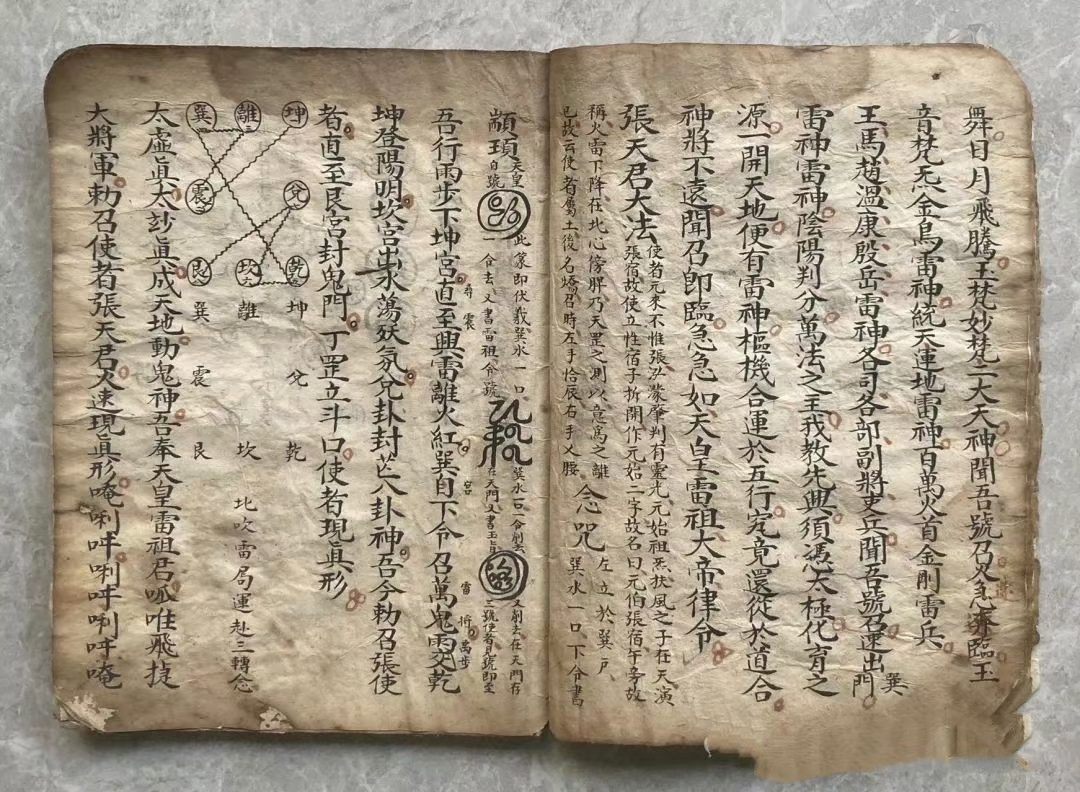 舞日月飛騰玉梵妙梵二大天神聞吾號召火急速降臨玉
音梵炁金烏雷神統天運地雷神百萬火首金剛雷兵
王馬趙溫康殷岳雷神各司各部副將吏兵聞吾號召速出巽門
雷神雷神陰陽判分萬法之主我教先興須憑太極化育之
源一開天地便有雷神樞機合運於五行究竟還從於道合
神將不遠聞召即臨急急如天皇雷祖大帝律令
張天君大法
使者元來不惟張泓濛肇判有靈光元始祖炁扶風之子在天演
張宿故使立性宿子拆開作元始二字故名曰元伯張宿午旁故
稱火雷下降在北心傍脾乃天罡之測以意為之離
已故云使者屬土後名燆召時左手恰辰右手乂腰
念咒
左立於巽戶
巽水一口下令書
顓頊
天皇
自號
此篆即伏羲巽水一口
一令去又書雷祖令號
巽水一口令剔去
在天門又書玉旨
又剔去在天門存
三號使者見號即至
吾行雨步下坤宮直至興雷離火紅巽自下令召萬鬼雨交乾
奇震
宮
雷行萬步
坤登陽明坎宮出水蕩妖氛兌卦封亡八卦神吾今勅召張使
者直至艮宮封鬼門丁罡立斗口使者現眞形
坤 離 巽
兌 震
乾 坎 艮
坤 兌 乾
離 坎
巽 震 艮
北吹雷局運赴三轉念
太虛眞太玅眞成天地動鬼神吾奉天皇雷祖君呱唯飛捷
大將軍勅召使者張天君火速現眞形唵唎吽唎吽唎吽唵